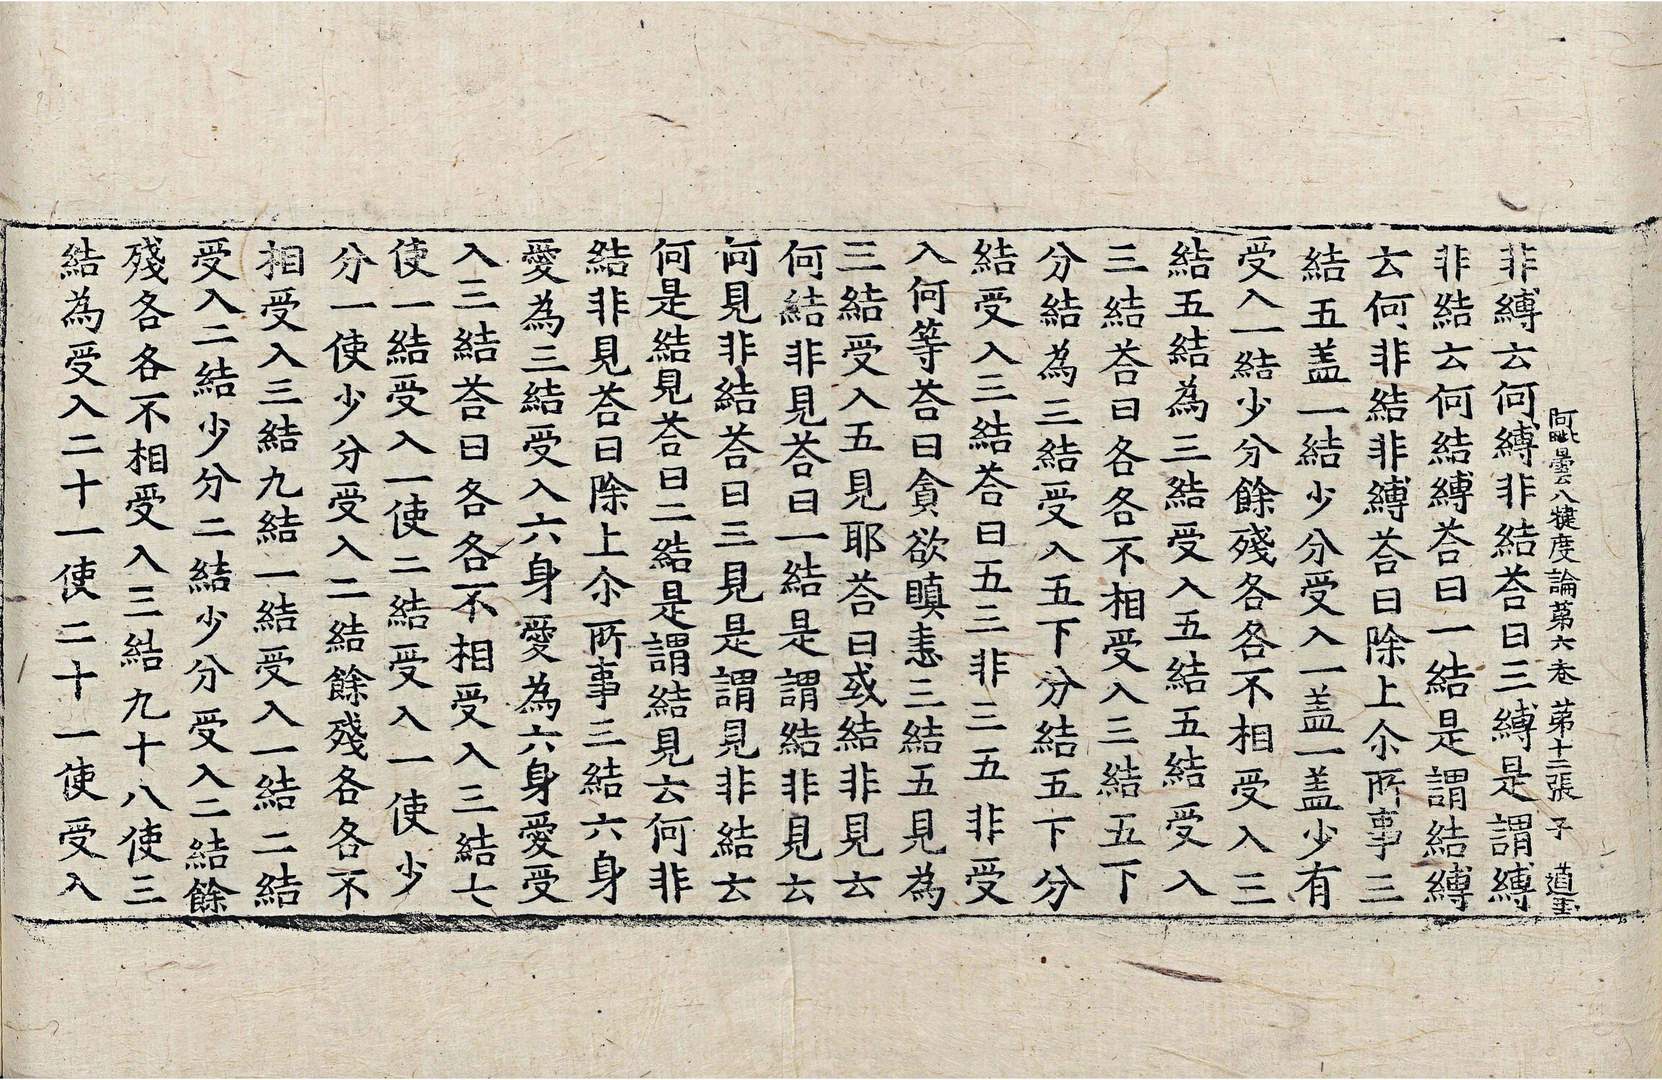 阿毗曇八犍度論第六卷 第十二張 子 道𤣥
非縛云何縛非結荅曰三縛是謂縛
非結云何結縛荅曰一結是謂結縛
云何非結非縛荅曰除上尒所事三
結五盖一結少分受入一盖一盖少有
受入一結少分餘殘各各不相受入三
結五結為三結受入五結五結受入
三結荅曰各各不相受入三結五下
分結為三結受入五下分結五下分
結受入三結荅曰五三非三五非受
入何等荅曰貪欲瞋恚三結五見為
三結受入五見耶荅曰或結非見云
何結非見荅曰一結是謂結非見云
何見非結荅曰三見是謂見非結云
何是結見荅曰二結是謂結見云何非
結非見荅曰除上尒所事三結六身
愛為三結受入六身愛為六身愛受
入三結荅曰各各不相受入三結七
使一結受入一使二結受入一使少
分一使少分受入二結餘殘各各不
相受入三結九結一結受入一結二結
受入二結少分二結少分受入二結餘
殘各各不相受入三結九十八使三
結為受入二十一使二十一使受入